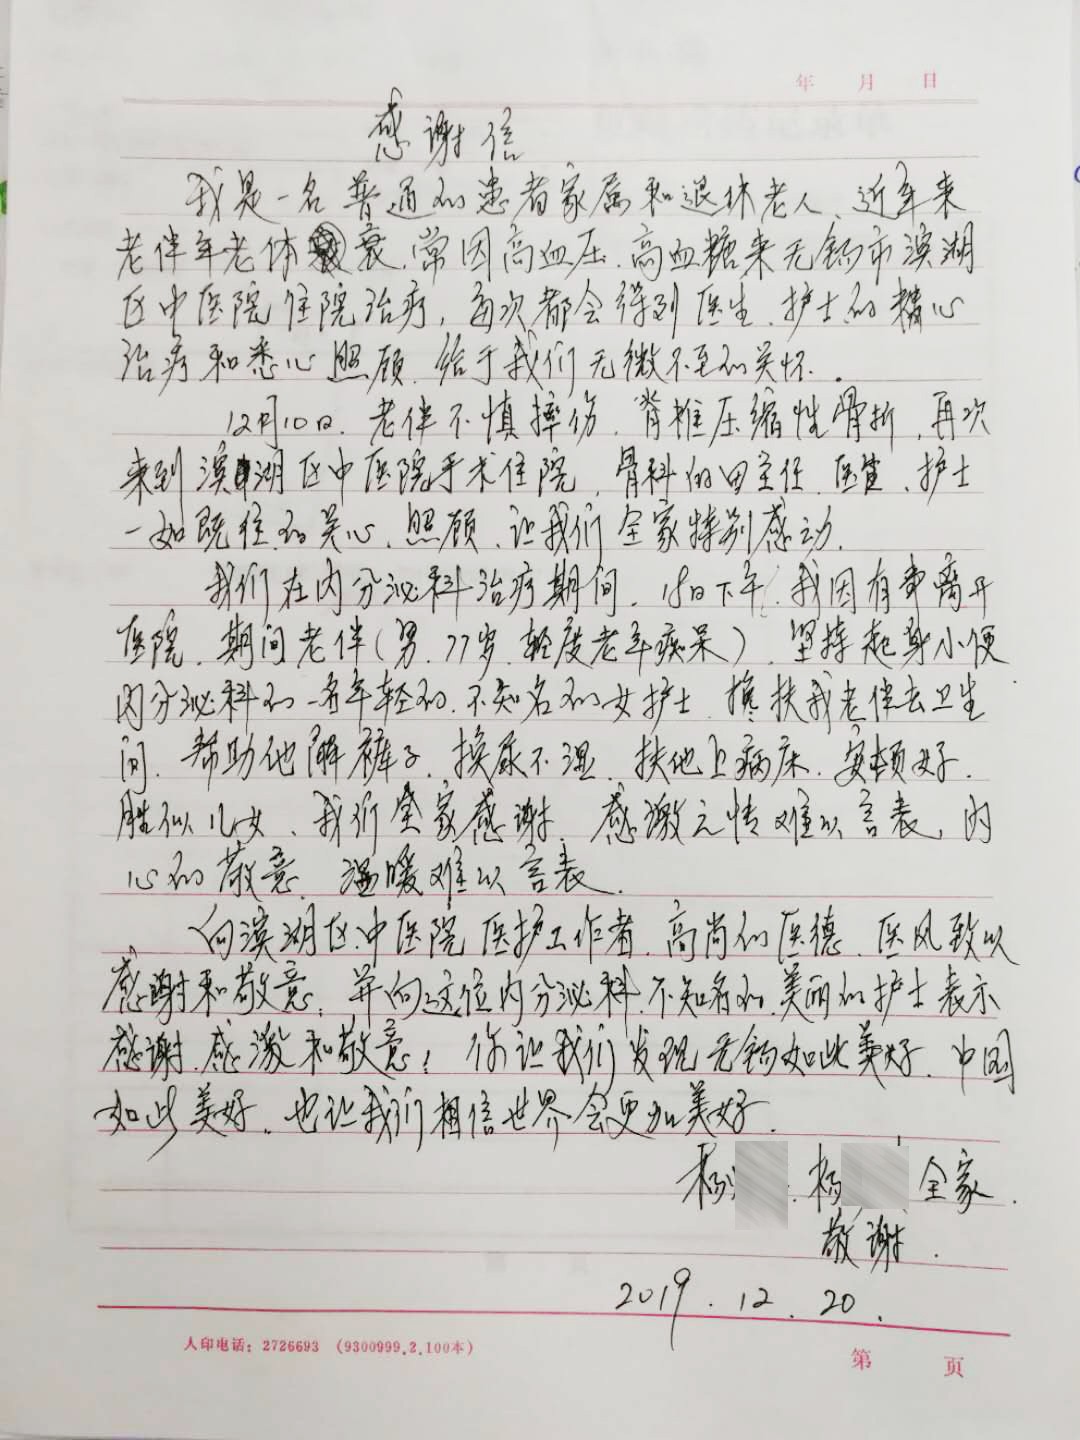 年 月 日
感谢信
我是一名普通的患者家属和退休老人、近年来
老伴年老体衰、常因高血压、高血糖来无锡市滨湖
区中医院住院治疗，每次都会得到医生、护士的精心
治疗和悉心照顾、给于我们无微不至的关怀。
12月10日、老伴不慎摔伤、脊椎压缩性骨折，再次
来到滨湖区中医院手术住院、骨科的田主任、医生、护士
一如既往的关心、照顾、让我们全家特别感动、
我们在内分泌科治疗期间、18日下午、我因有事离开
医院、期间老伴(男、77岁、轻度老年痴呆)、坚持起身小便
内分泌科的一名年轻的、不知名的女护士、搀扶我老伴去卫生
间、帮助他解裤子、换尿不湿、扶他上病床、安顿好、
胜似儿女、我们全家感谢、感激之情难以言表、内
心的敬意、温暖难以言表、
向滨湖区中医院医护工作者、高尚的医德、医风致以
感谢和敬意、并向这位内分泌科、不知名的、美丽的护士表示
感谢、感激和敬意！你让我们发现无锡如此美好、中国
如此美好、也让我们相信世界会更加美好、
杨 、杨 全家、
敬谢、
2019.12.20.
人印电话：2726693 (9300999.2.100本)
第 页